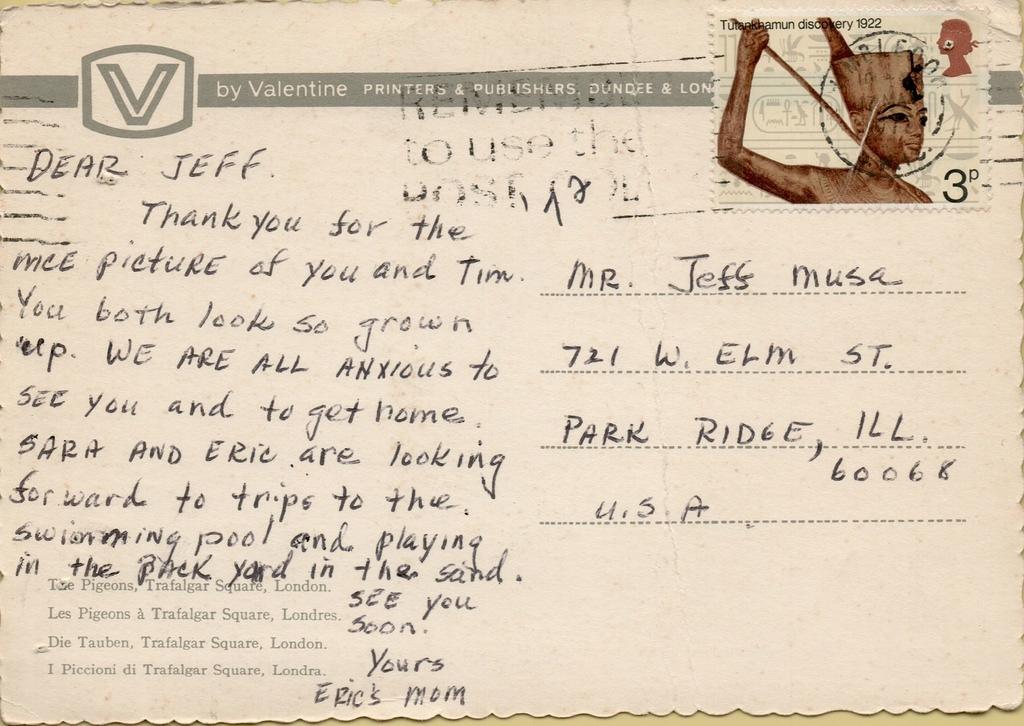 Tutankhamun discovery 1922
V by Valentine PRINTERS & PUBLISHERS, DUNDEE & LON
REMEMBER
to use the
POST CODE
3P
DEAR JEFF.
Thank you for the
nice picture of you and Tim.
You both look so grown
up. WE ARE ALL ANXIOUS to
SEE you and to get home.
SARA AND ERIC are looking
forward to trips to the
swimming pool and playing
in the BACK yard in the sand.
SEE you
soon.
Yours
Eric's mom
MR. Jeff musa
721 W. ELM ST.
PARK RIDGE, ILL.
60068
U.S.A
The Pigeons, Trafalgar Square, London.
Les Pigeons à Trafalgar Square, Londres.
Die Tauben, Trafalgar Square, London.
I Piccioni di Trafalgar Square, Londra.